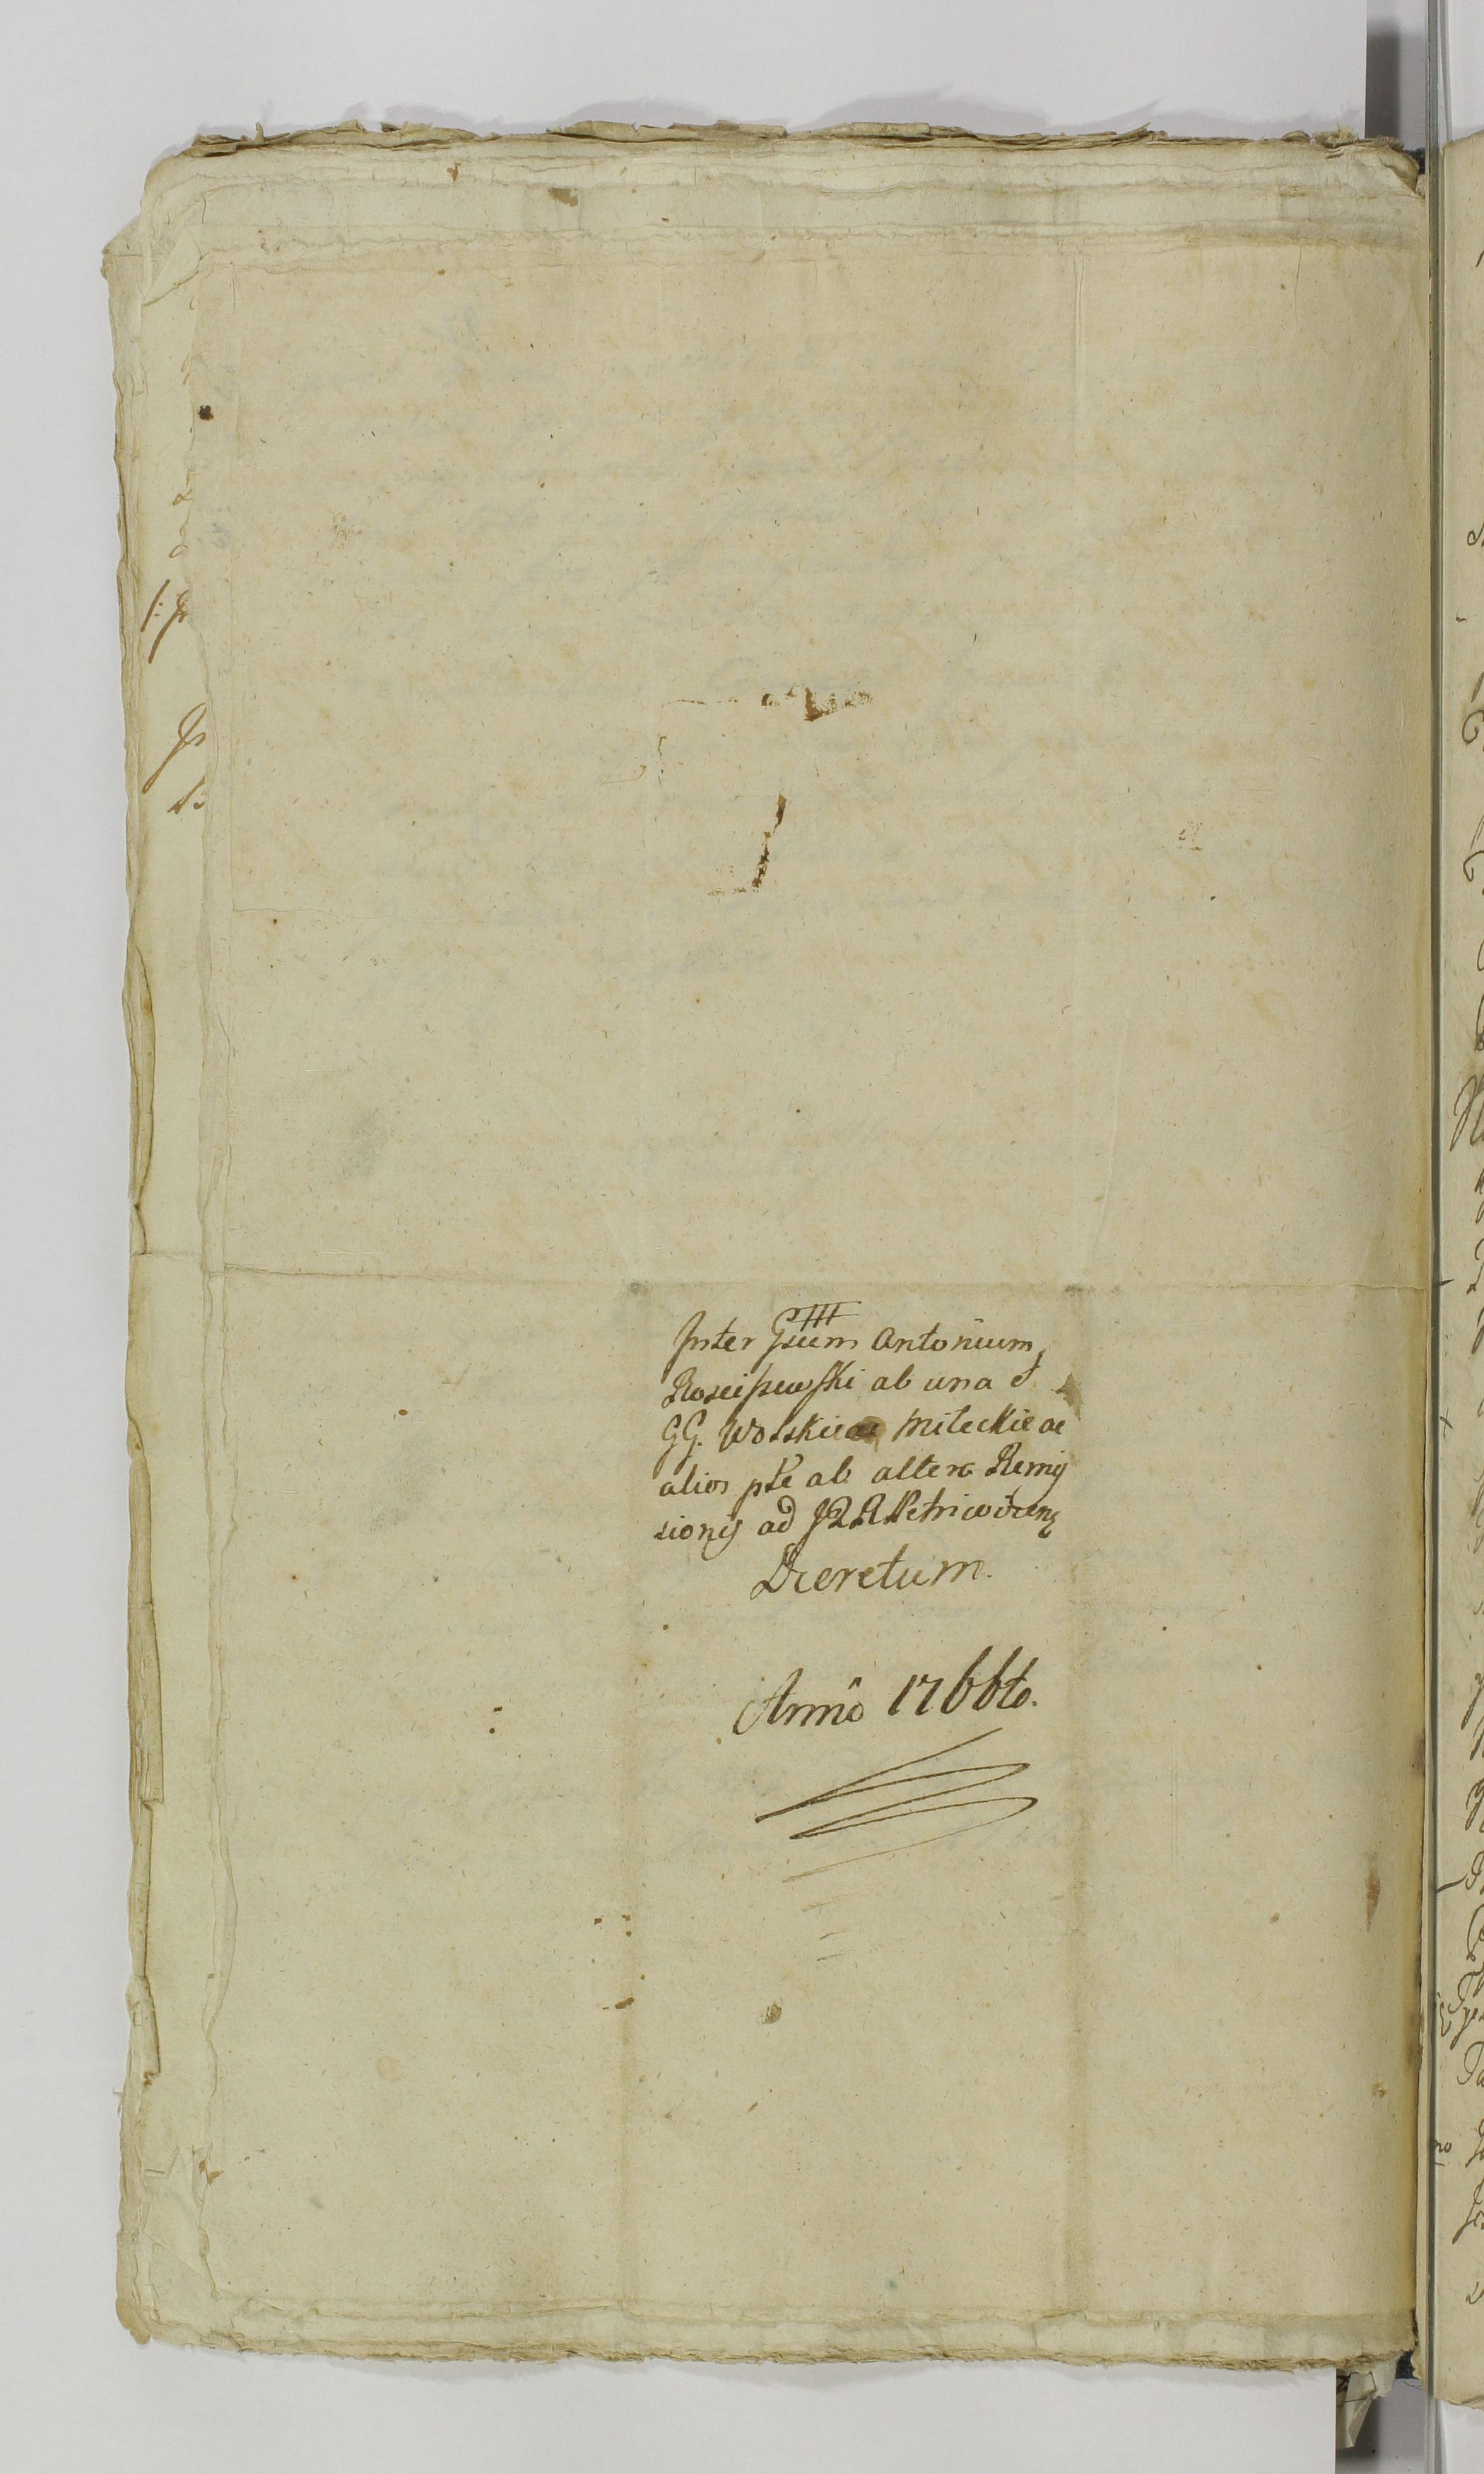 Inter Gsum Antonium
Rosciszewski ab una &
GG. Wolskie Mileckie ac
alios pte ab altera Remis
sionis ad
Decretum.
Anno 1766to.